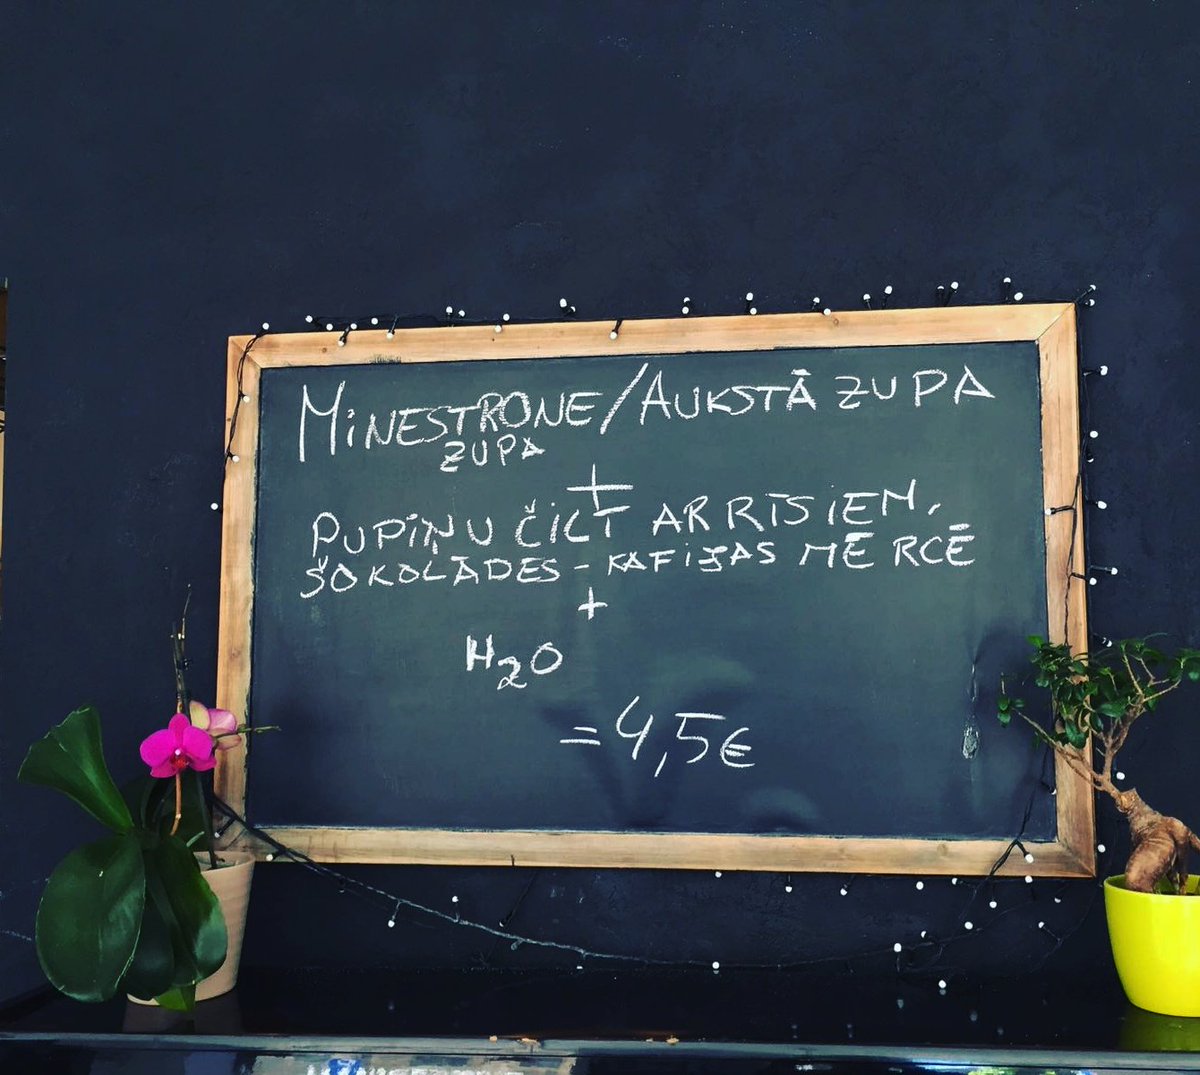 MINESTRONE/AUKSTĀ ZUPA
ZUPA
+
PUPIŅU ČILI AR RĪSIEM,
ŠOKOLĀDES-KAFIJAS MĒRCĒ
+
H2O
=4,5€